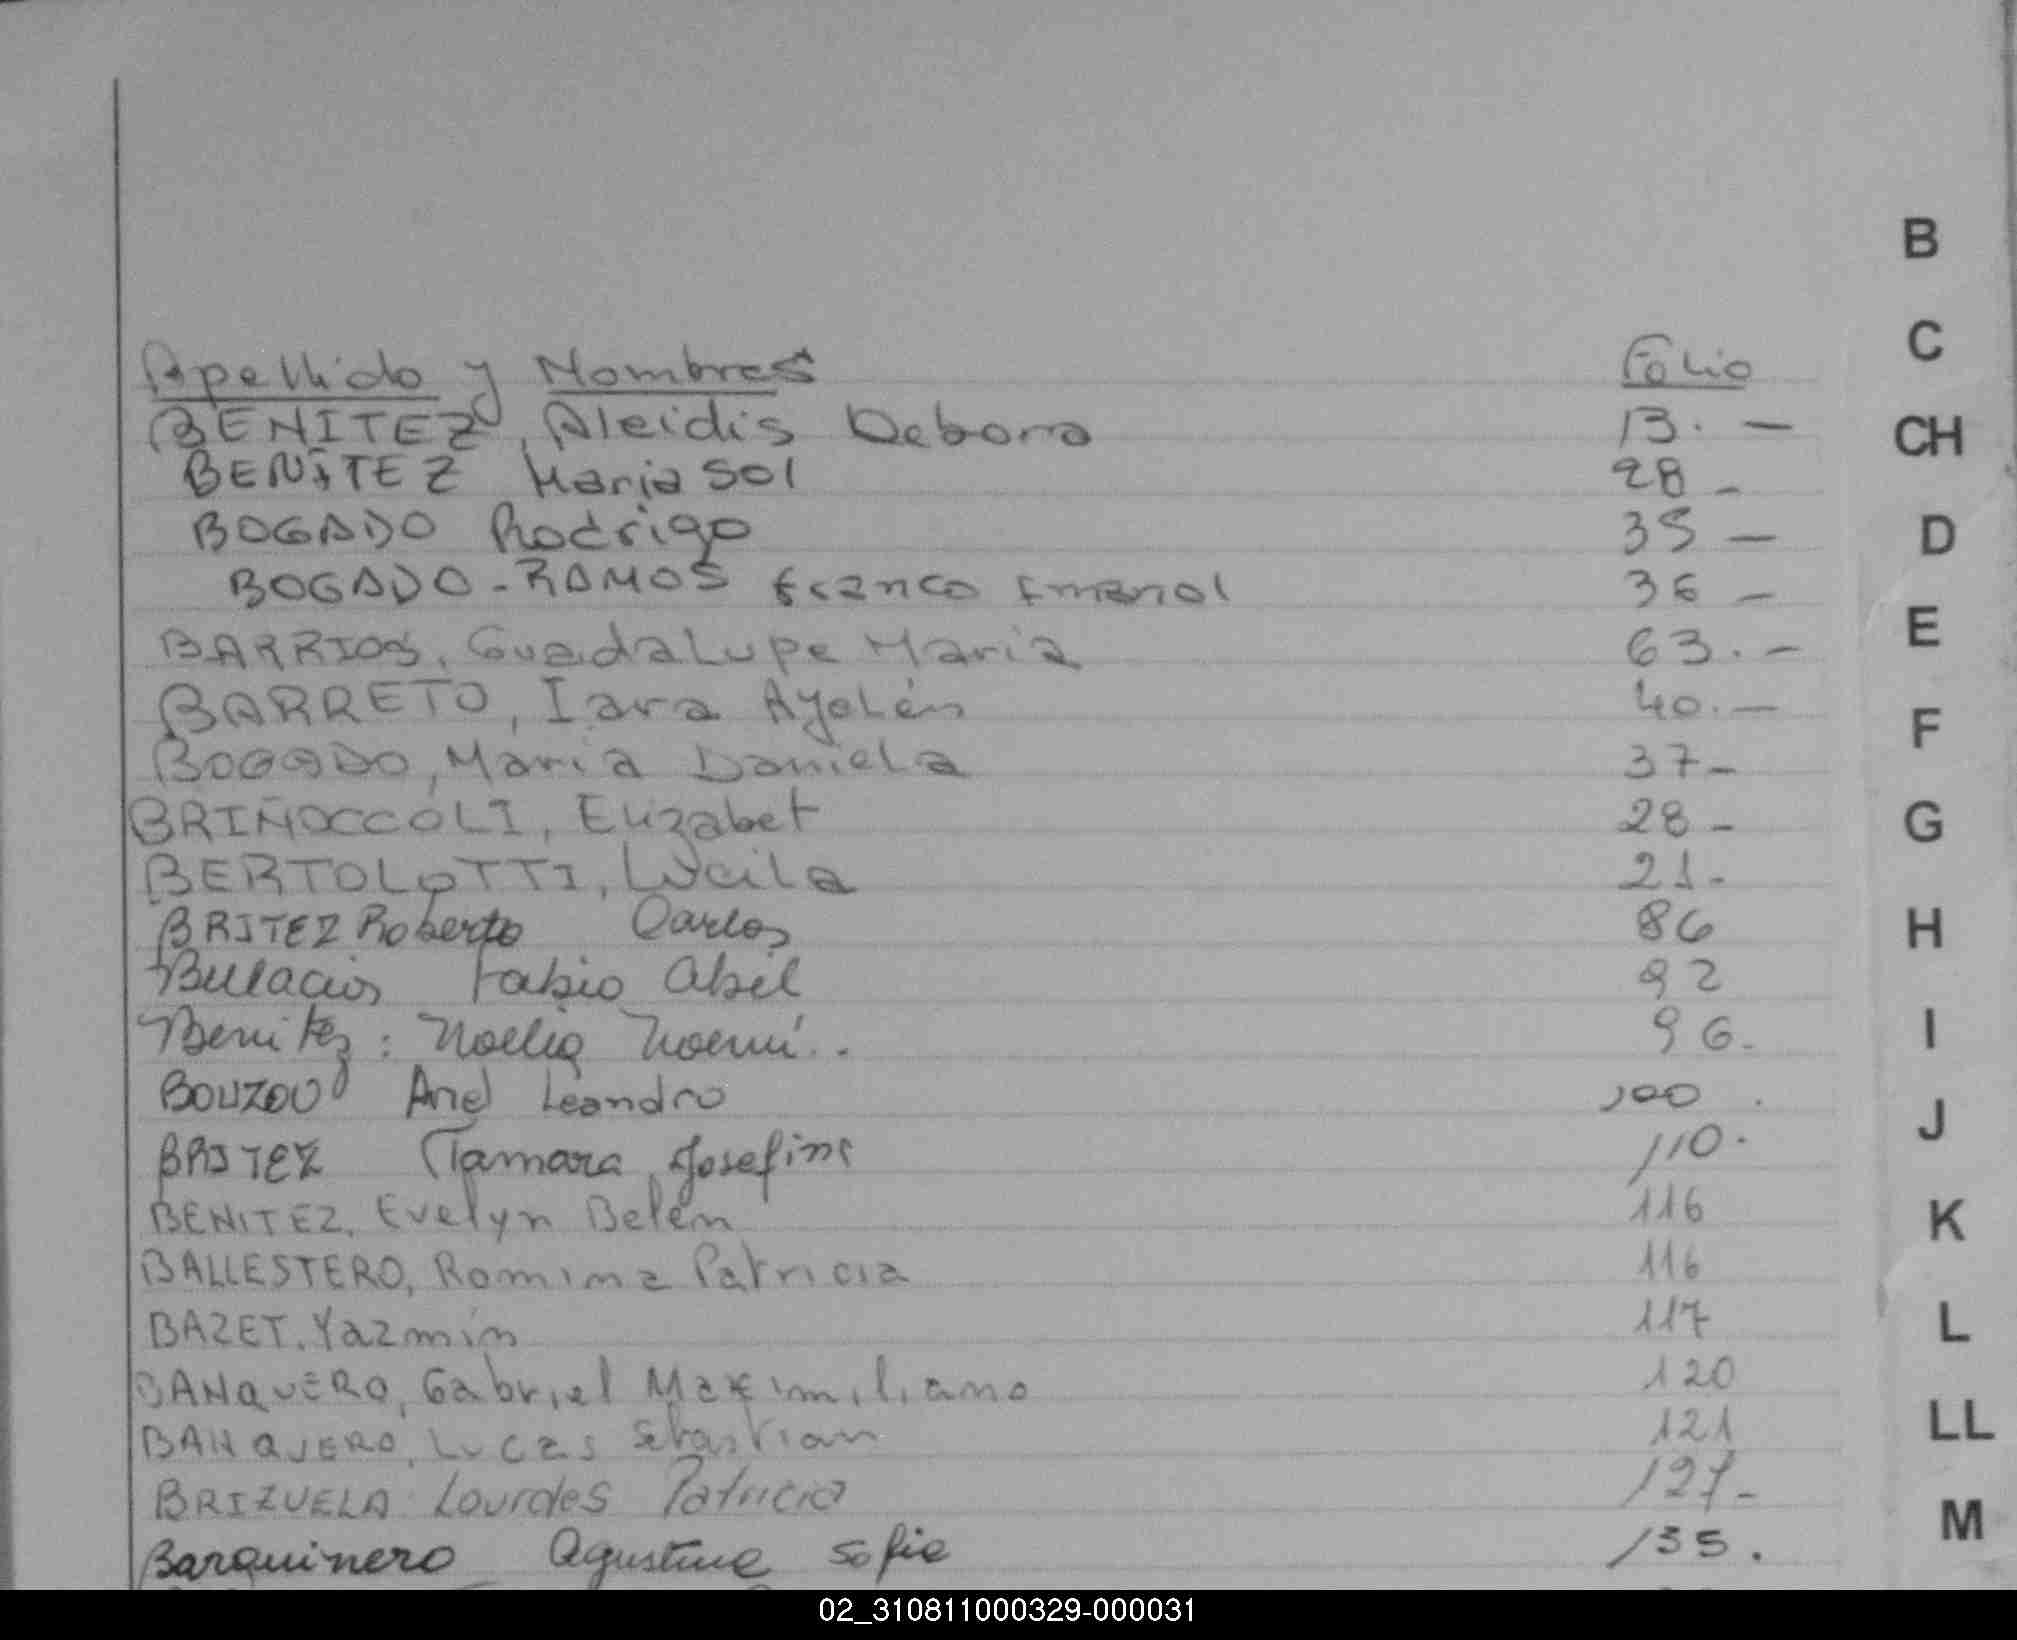 Apellido y Nombres Folio
BENITEZ, Aleidis Debora 13. -
BENITEZ Maria Sol 28 -
BOGADO Rodrigo 35 -
BOGADO-RAMOS franco Emanol 36 -
BARRIOS, Guadalupe Maria 63. -
BARRETO, Iara Ayelén 40. -
BOGADO, Maria Daniela 37 -
BRIÑOCCOLI, Elizabet 28 -
BERTOLOTTI, Lucila 21 -
BRITEZ Roberto Carlos 86
Bullacios Fabio Abel 92
Benitez: Noelia Noemí. 96.
BOUZOU Ariel Leandro 100.
BRITEZ Tamara Josefina 110.
BENITEZ, Evelyn Belén 116
BALLESTERO, Romina Patricia 116
BAZET. Yazmín 117
BANQUERO, Gabriel Maximiliano 120
BANQUERO, Lucas Sebastian 121
BRIZUELA Lourdes Patricia 127 -
Barquinero Agustina Sofia 135.
B
C
CH
D
E
F
G
H
I
J
K
L
LL
M
02_310811000329-000031